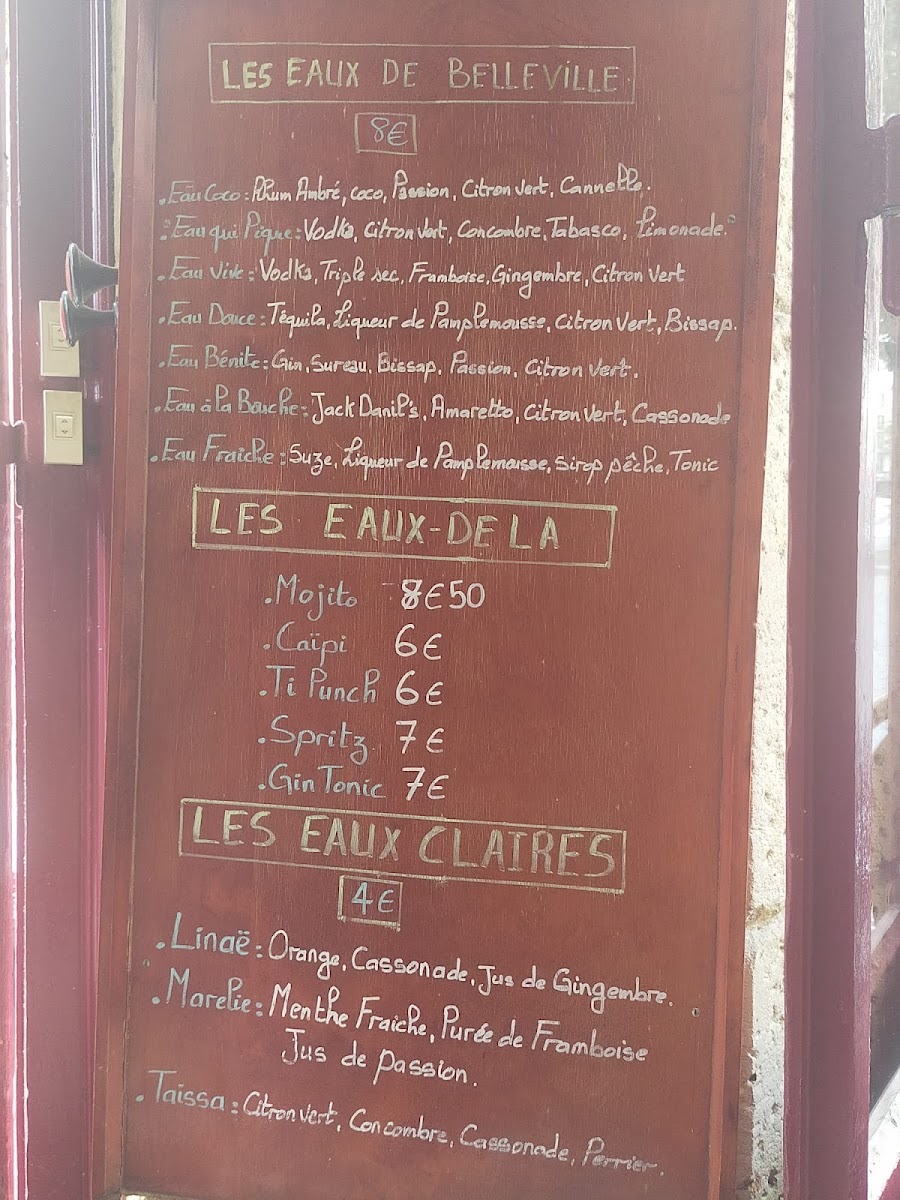 LES EAUX DE BELLEVILLE
8€
.Eau Coco : Rhum Ambré, coco, Passion, Citron vert, Cannelle.
.Eau qui Pique : Vodka, citron vert, Concombre, Tabasco, Limonade.
.Eau Vive : Vodka, Triple sec, Framboise, Gingembre, Citron vert
.Eau Douce : Téquila, Liqueur de Pamplemousse, Citron Vert, Bissap.
.Eau Bénite : Gin, Sureau, Bissap, Passion, Citron vert.
.Eau à la Bouche : Jack Danil's, Amaretto, Citron vert, Cassonade
.Eau Fraîche : Suze, Liqueur de Pamplemousse, Sirop pêche, Tonic
LES EAUX-DELA
.Mojito 8€50
.Caïpi 6€
.Ti Punch 6€
.Spritz 7€
.Gin Tonic 7€
LES EAUX CLAIRES
4€
.Linaë : Orange, Cassonade, Jus de Gingembre.
.Marelie : Menthe Fraiche, Purée de Framboise
Jus de passion.
.Taissa : Citron vert, Concombre, Cassonade, Perrier.